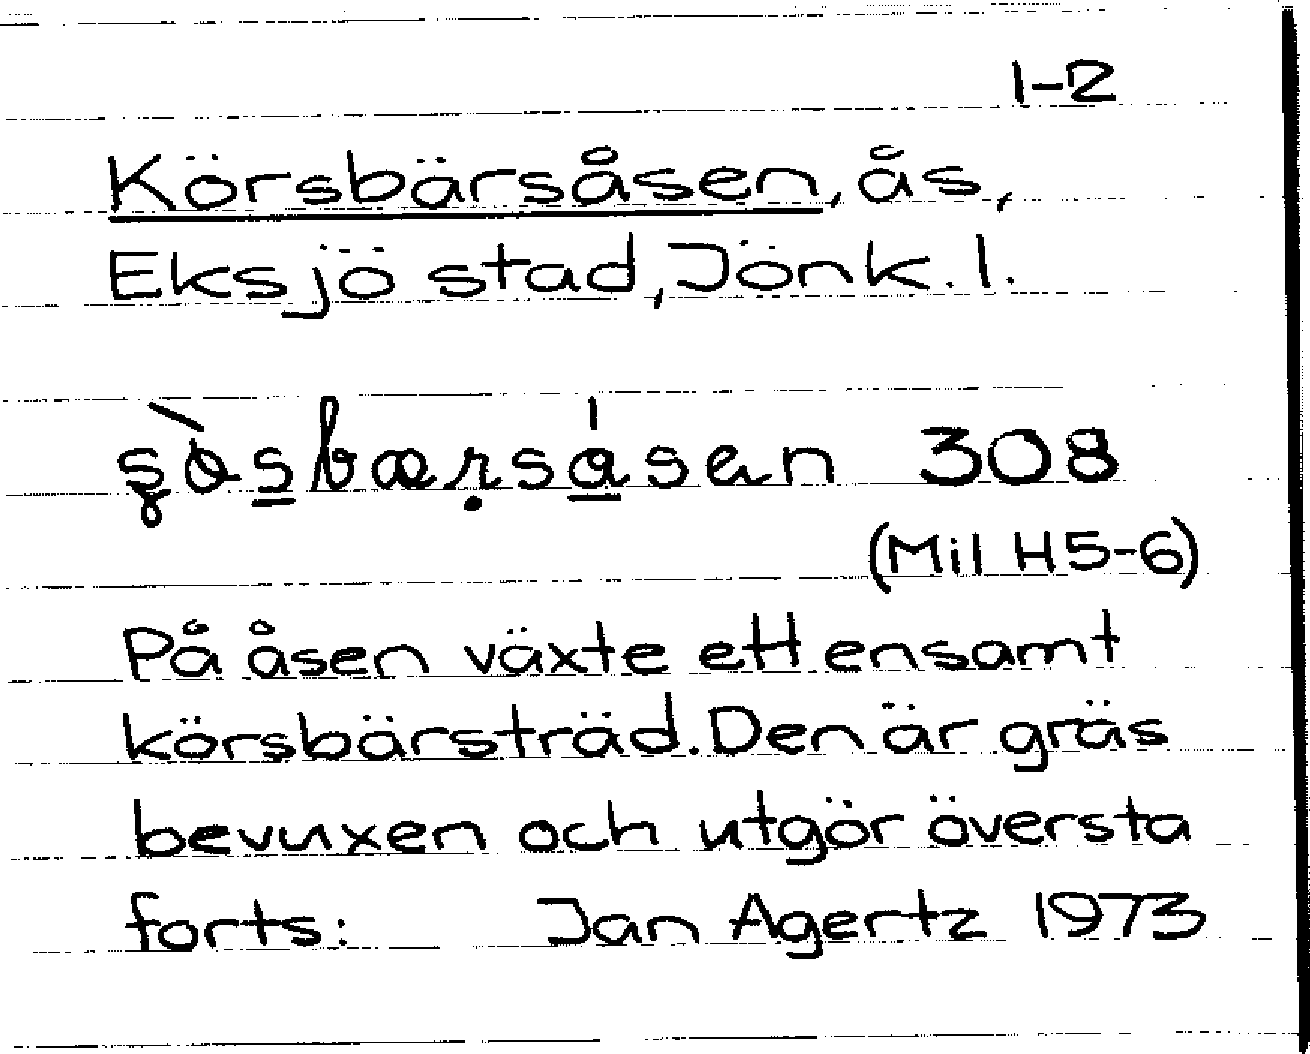 1-2
Körsbärsåsen, ås,
Eksjö stad, Jönk. l.
308
(Mil H5-6)
På åsen växte ett ensamt
körsbärsträd. Den är gräs
bevuxen och utgör översta
forts: Jan Agertz 1973